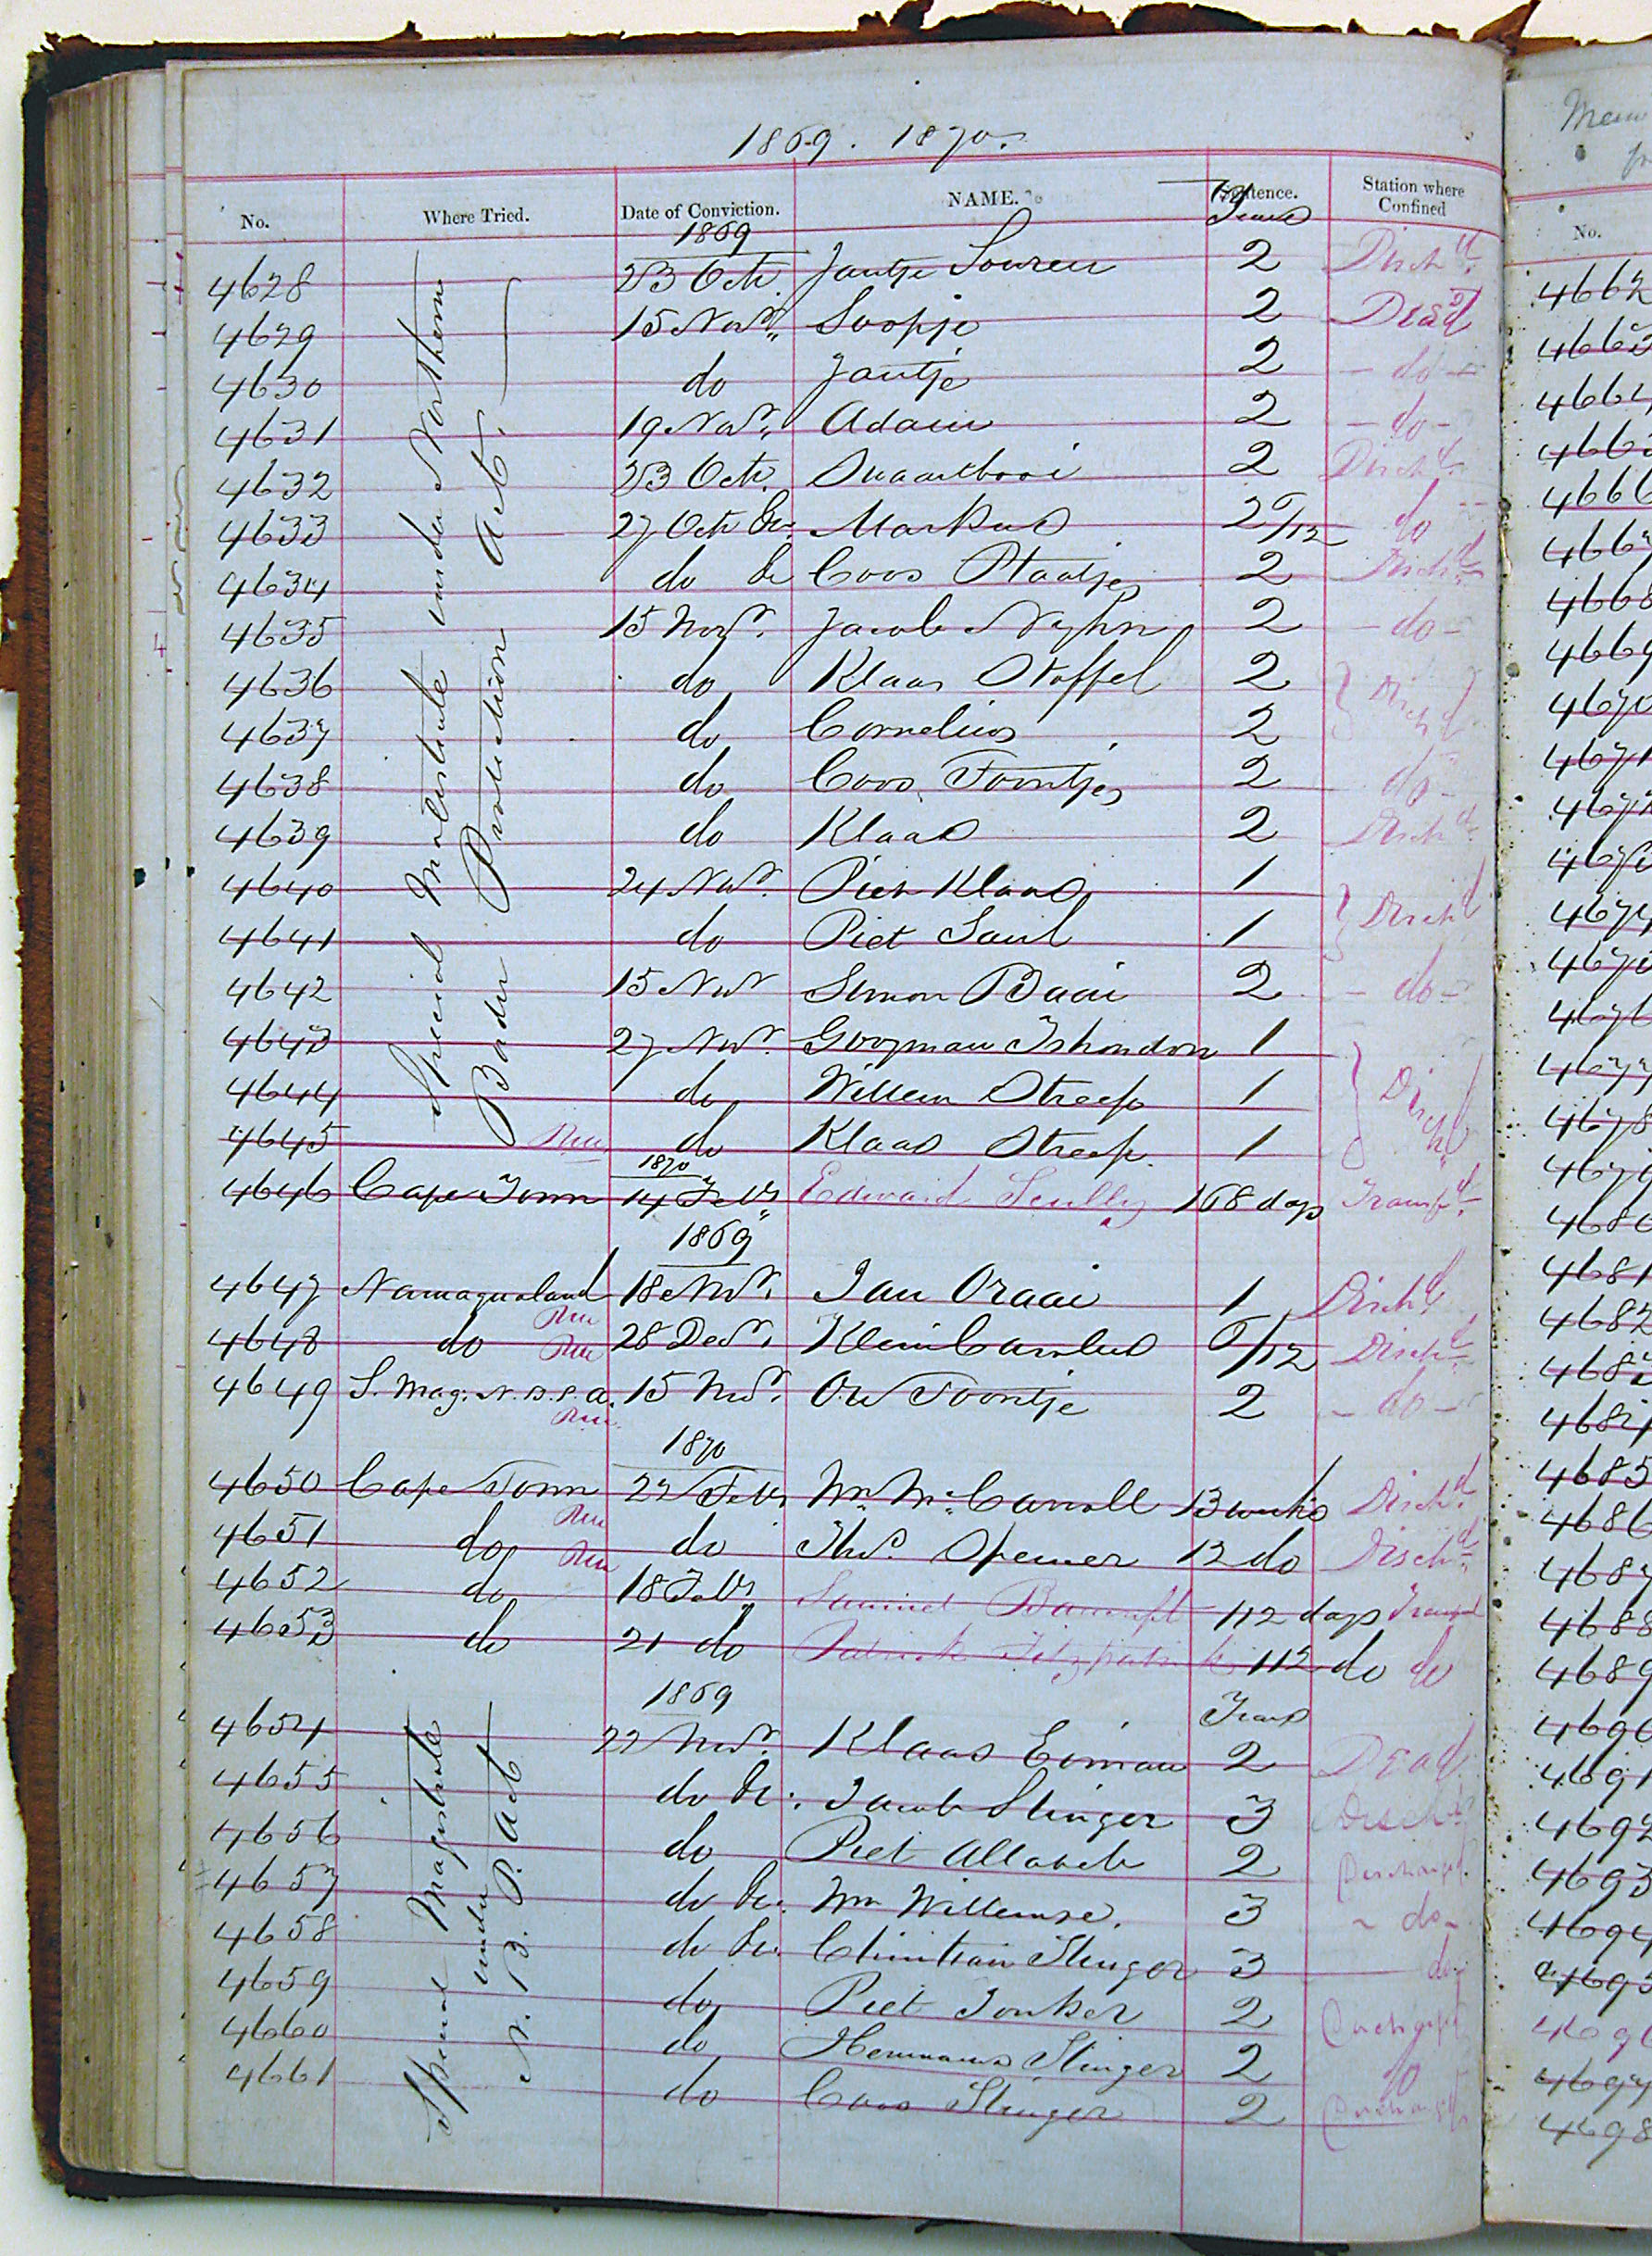 1869. 1870.
No. Where Tried. Date of Conviction. NAME. Sentence. Station where Confined
1869 Years
Special Magistrate under Northern
Border Protection Act.
4628 23 Octr. Jantje Louren 2 Dischd.
4629 15 Novr. Soopje 2 Dead
4630 do Jantje 2 - do -
4631 19 Novr. Adam 2 - do -
4632 23 Octr. Swaartbooi 2 Dischd.
4633 27 Octr Markus 2 6/12 do
4634 do Coos Staatjes 2 Dischd.
4635 15 Novr. Jacob 2 - do -
4636 do Klaas Stoffel 2 Dischd
4637 do Cornelius 2
4638 do Coos Toontjes 2 do -
4639 do Klaas 2 Dischd.
4640 24 Novr. Piet Klaas 1 Dischd
4641 do Piet Saul 1
4642 15 Novr Simon Baai 2 - do -
4643 27 Novr. Goozman 1 Dischd
4644 do Willem Streep 1
4645 do Klaas Streep. 1
1870
4646 Cape Town 14 Feby Edward Scully 168 days Transfd.
1869
4647 Namaqualand 18 Novr. Jan Oraai 1 Dischd.
4648 do 28 Decr. Klein Carolus 6/12 Dischd.
4649 S. Mag. N. B. P. A. 15 Novr. Ou Toontje 2 - do -
1870
4650 Cape Town 22 Feby Wm. McCarroll 13 weeks Dischd.
4651 do do Thos. Spencer 12 do Dischd.
4652 do 18 Feby Samuel Bancroft 112 days Transfd
4653 do 21 do Patrick Fitzpatrick 112 do do
1869 Years
Special Magistrate
under
N. B. P. Act
4654 22 Novr. Klaas Eiman 2 Dead
4655 do Jacob Slinger 3 Dischd.
4656 do Piet 2 Discharged.
4657 do Wm Willemse. 3 - do -
4658 do Christian Slinger 3 do
4659 do Piet Jonker 2 Discharged
4660 do Hermanus Slinger 2 do
4661 do Coos Slinger 2 Discharged
Mem
No.
4662
4663
4664
4665
4666
4667
4668
4669
4670
4671
4672
4673
4674
4675
4676
4677
4678
4679
4680
4681
4682
4683
4684
4685
4686
4687
4688
4689
4690
4691
4692
4693
4694
4695
4696
4697
4698